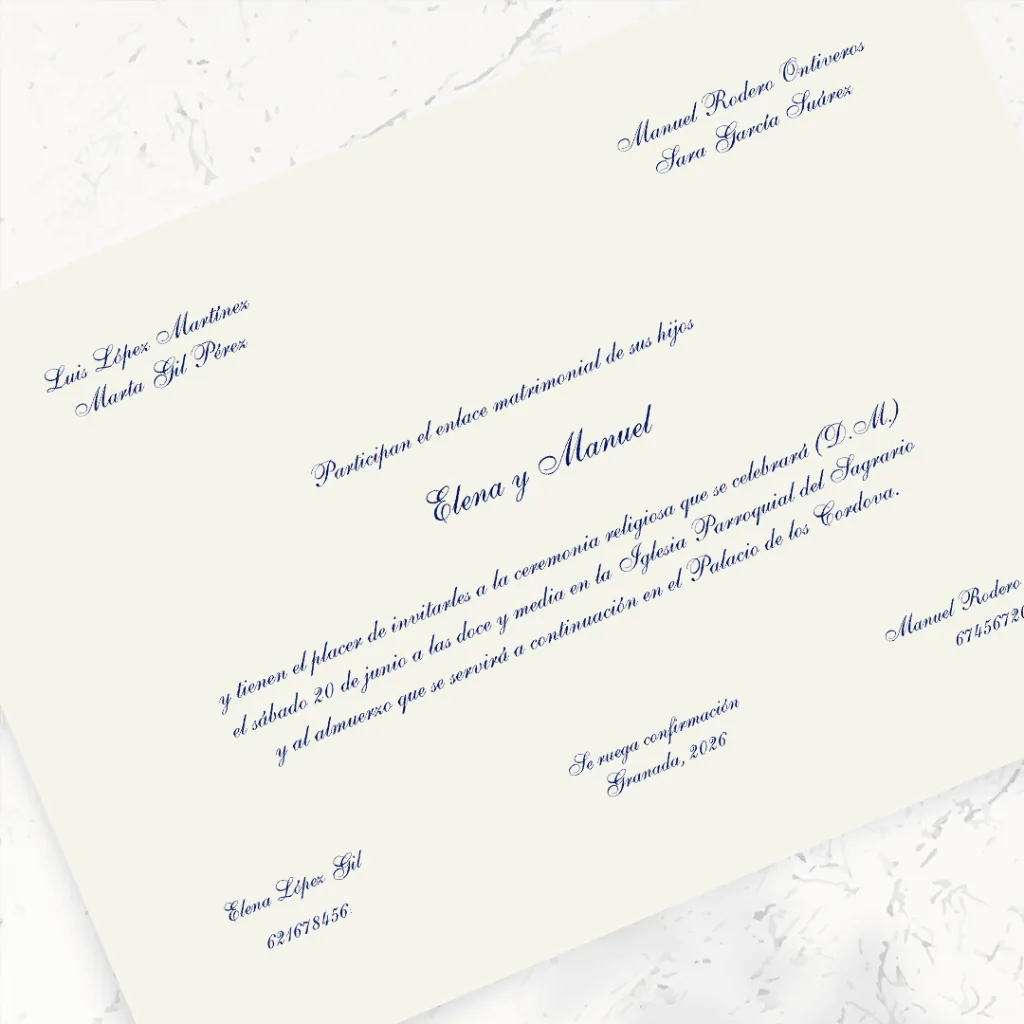 Manuel Rodero Ontiveros
Sara García Suárez
Luis López Martínez
Marta Gil Pérez
Participan el enlace matrimonial de sus hijos
Elena y Manuel
y tienen el placer de invitarles a la ceremonia religiosa que se celebrará (D.M.)
el sábado 20 de junio a las doce y media en la Iglesia Parroquial del Sagrario
y al almuerzo que se servirá a continuación en el Palacio de los Cordova.
Manuel Rodero
Se ruega confirmación
Granada, 2026
Elena López Gil
621678456